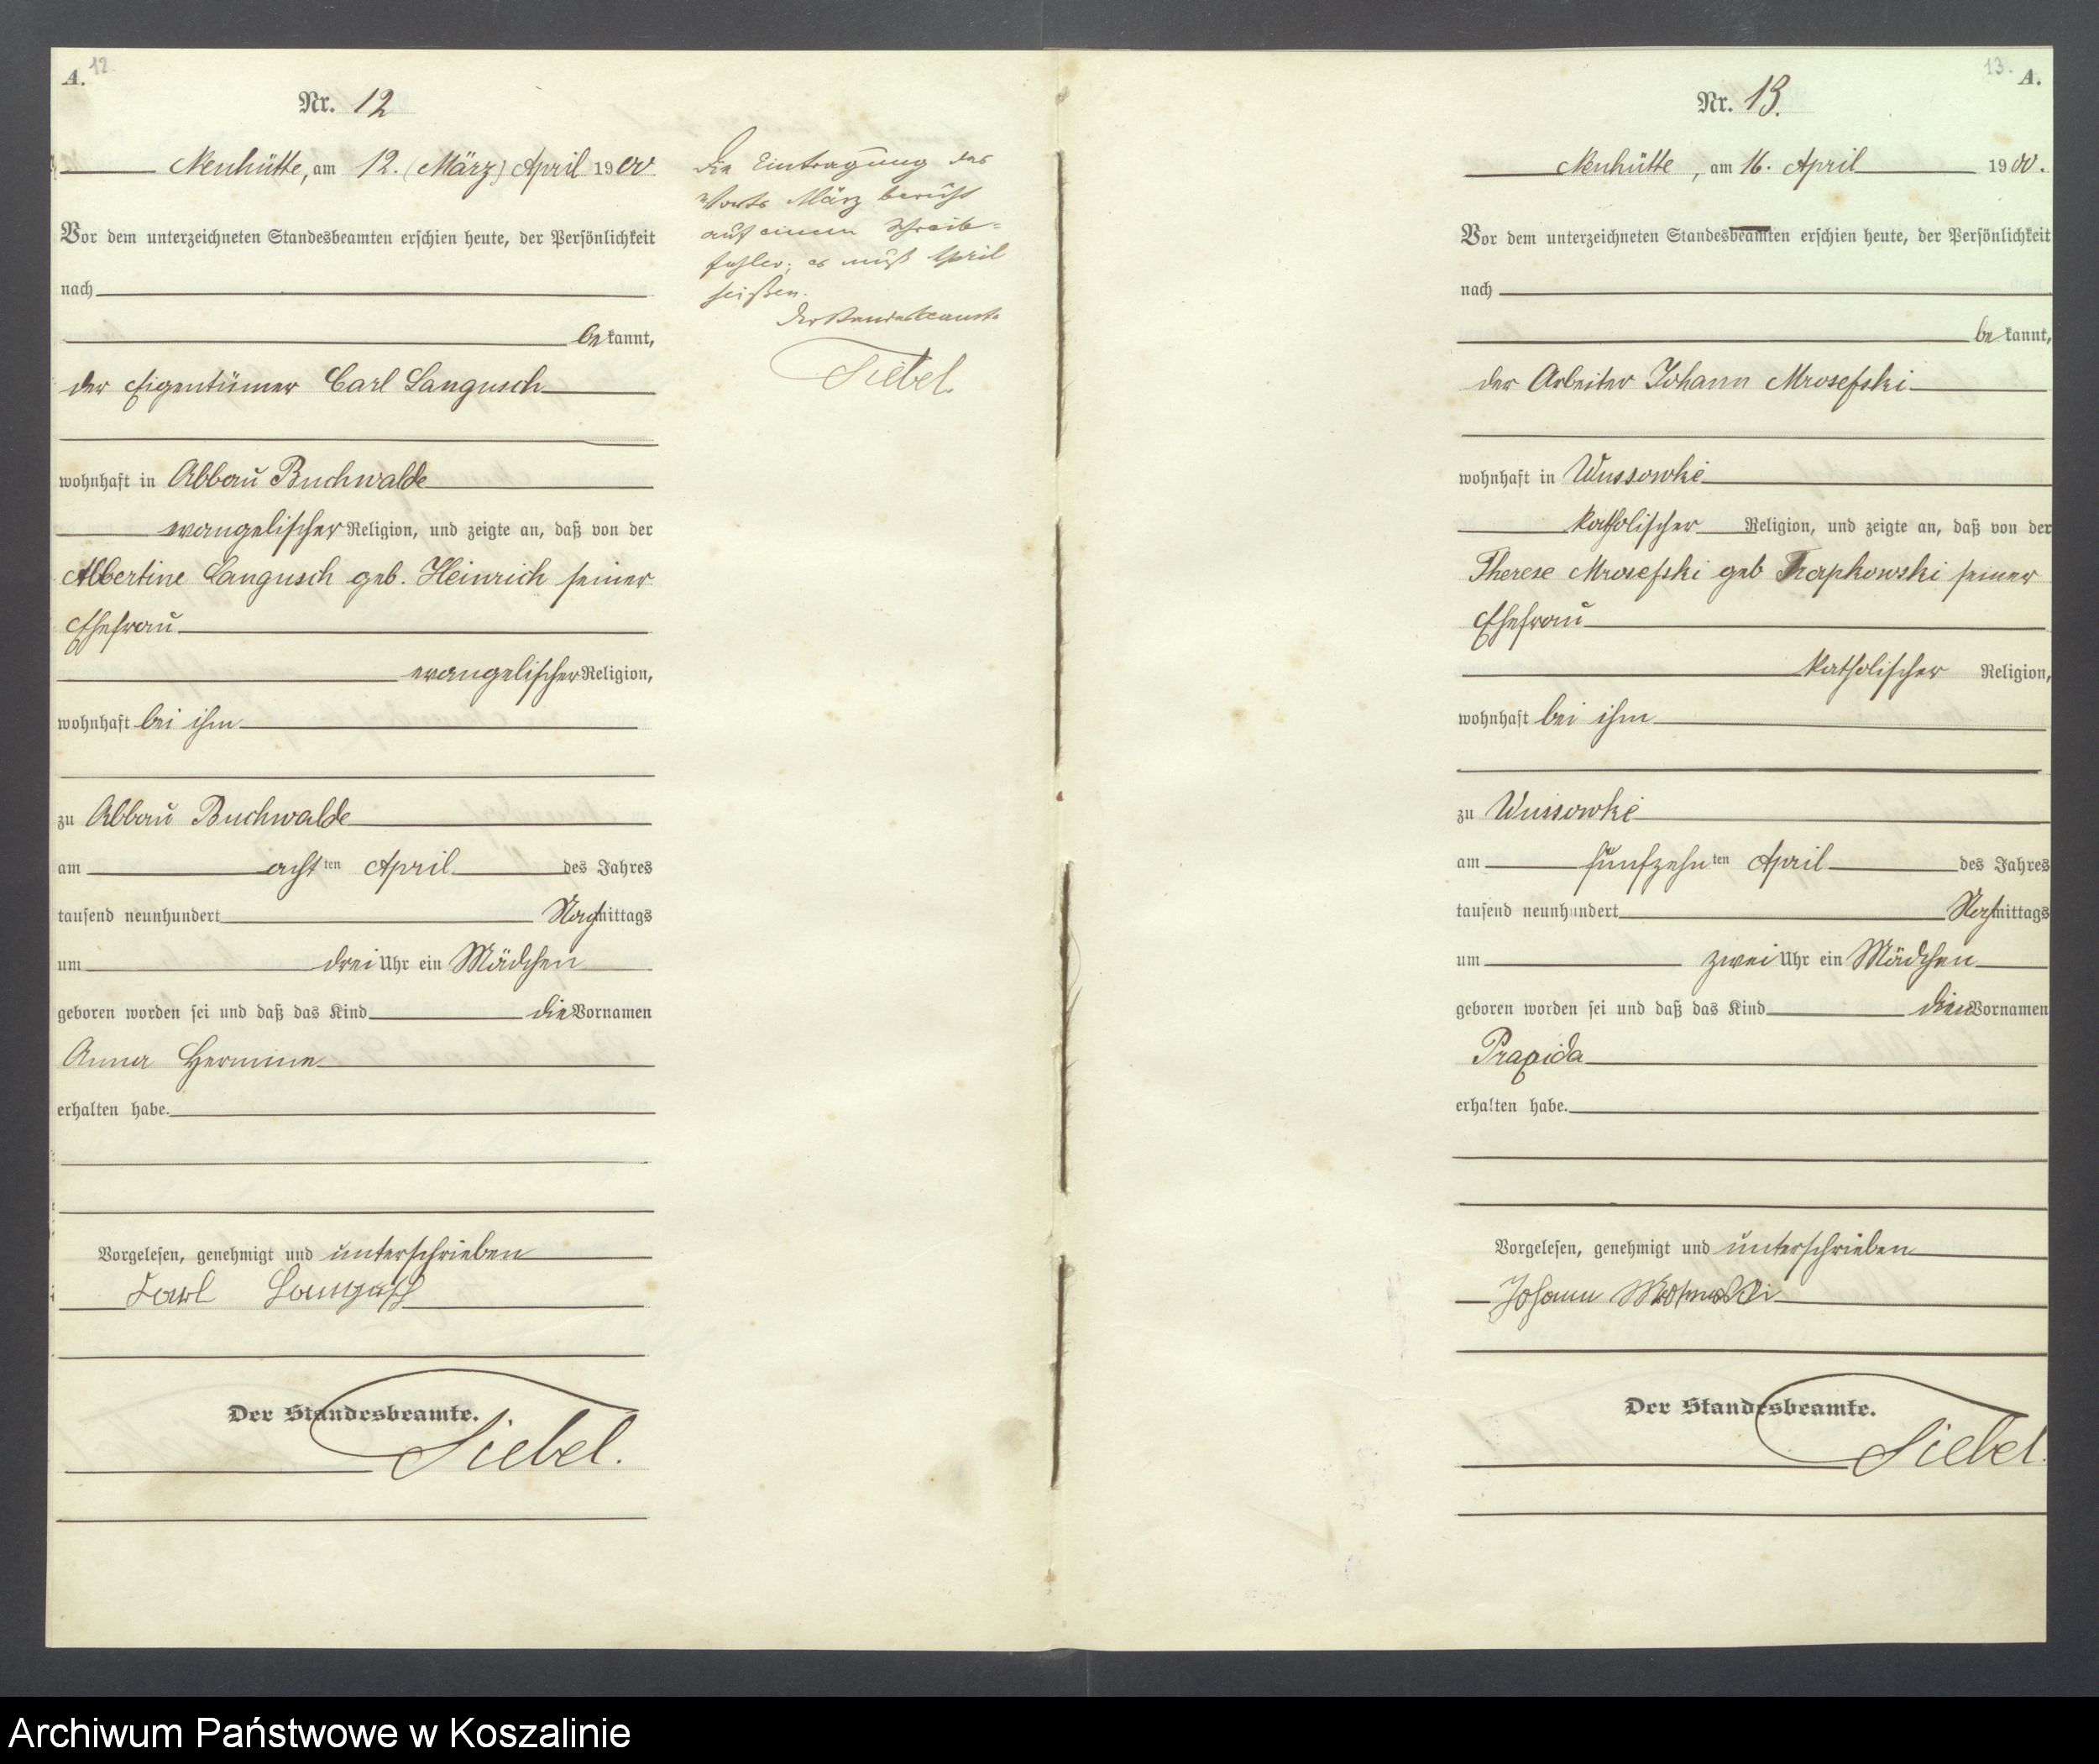 A. 12.
Nr. 12
Neuhütte, am 12. (März) April 1900
Vor dem unterzeichneten Standesbeamten erschien heute, der Persönlichkeit
nach
bekannt,
der Eigentümer Carl Langusch
wohnhaft in Abbau Buchwalde
evangelischer Religion, und zeigte an, daß von der
Albertine Langusch geb. Heinrich seiner
Ehefrau
evangelischer Religion,
wohnhaft bei ihm
zu Abbau Buchwalde
am achtten April des Jahres
tausend neunhundert Nachmittags
um drei Uhr ein Mädchen
geboren worden sei und daß das Kind die Vornamen
Anna Hermine
erhalten habe.
Vorgelesen, genehmigt und unterschrieben
Karl Langusch
Der Standesbeamte.
Siebel.
Die Eintragung des
Worts März beruht
auf einem Schreib=
fehler; es muß April
heißen.
Der Standesbeamte
Siebel.
13. A.
Nr. 13.
Neuhütte, am 16. April 1900.
Vor dem unterzeichneten Standesbeamten erschien heute, der Persönlichkeit
nach
bekannt,
der Arbeiter Johann Mrosefski
wohnhaft in Wussowke
katholischer Religion, und zeigte an, daß von der
Therese Mrosefski geb Trapkowski seiner
Ehefrau
katholischer Religion,
wohnhaft bei ihm
zu Wussowke
am fünfzehnten April des Jahres
tausend neunhundert Nachmittags
um zwei Uhr ein Mädchen
geboren worden sei und daß das Kind den Vornamen
Praxida
erhalten habe.
Vorgelesen, genehmigt und unterschrieben
Johann
Der Standesbeamte.
Siebel.
Archiwum Państwowe w Koszalinie